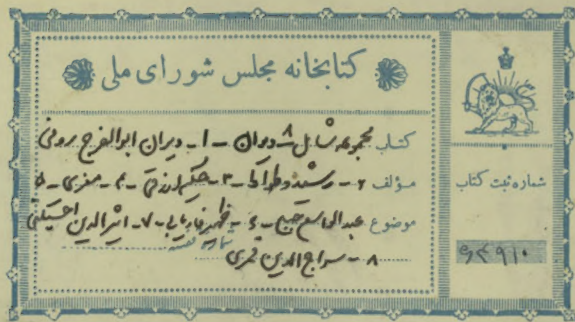 کتابخانه مجلس شورای ملی
کتاب مجموعه شامل ۸ دیوان - ۱- دیوان ابوالفرج رونی
مؤلف ۲- رشید وطواط - ۳- حکیم ازرقی - ۴- معزی - ۵
موضوع عبدالواسع جبلی - ۶- ظهیر فاریابی - ۷- اثیرالدین اخسیکتی
۸- سراج الدین قمری
شماره ثبت کتاب